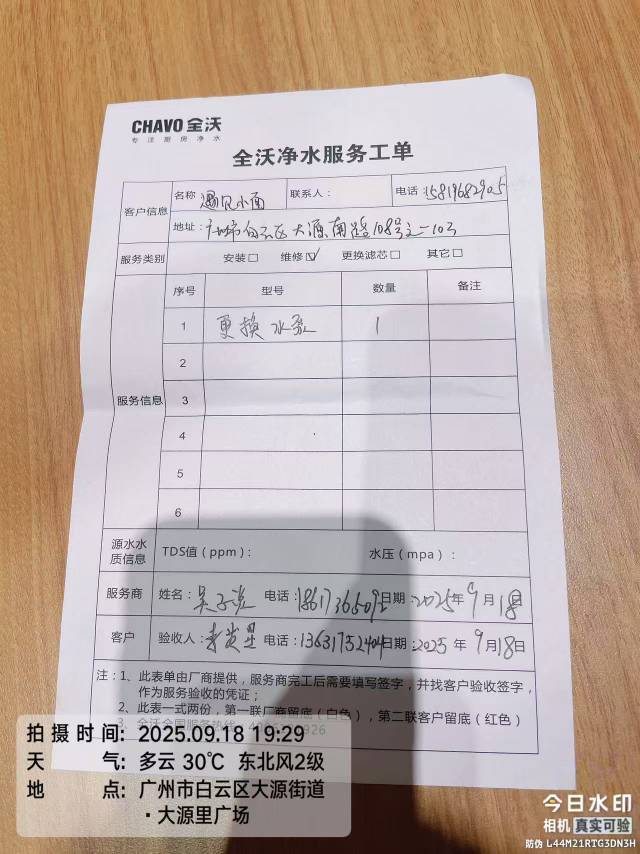 CHAVO 全沃
专注厨房净水
全沃净水服务工单
客户信息 名称 遇见小面 联系人： 电话 15819682905
地址： 广州市白云区大源南路108号之一103
服务类别 安装□ 维修☑ 更换滤芯□ 其它□
服务信息 序号 型号 数量 备注
1 更换水泵 1
2
3
4
5
6
源水水质信息 TDS值（ppm）： 水压（mpa）：
服务商 姓名： 电话： 日期：2025年9月18日
客户 验收人： 电话：13631752404 日期：2025年9月18日
注：1、此表单由厂商提供，服务商完工后需要填写签字，并找客户验收签字，
作为服务验收的凭证；
2、此表一式两份，第一联厂商留底（白色），第二联客户留底（红色）
3、全沃全国服务热线：
拍摄时间：2025.09.18 19:29
天气：多云 30℃ 东北风2级
地点：广州市白云区大源街道
·大源里广场
今日水印
相机 真实可验
防伪 L44M21RTG3DN3H